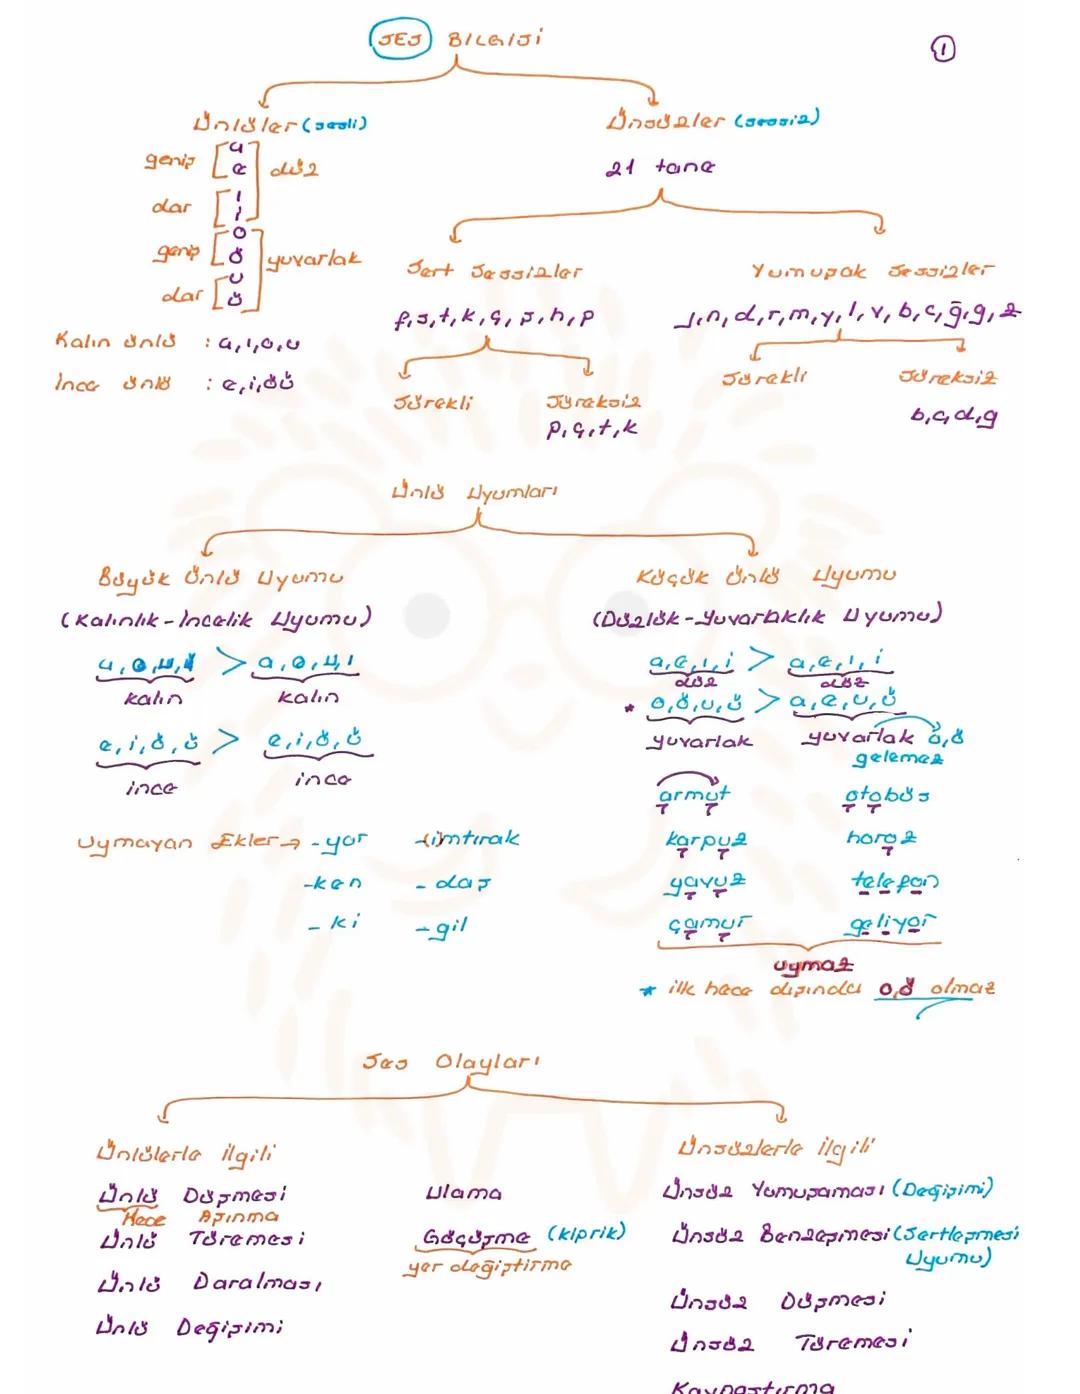 SES BİLGİSİ
1
Ünlüler (sesli)
Ünsüzler (sessiz)
geniş [ a e ] düz
21 tane
dar [ ı i ]
geniş [ o ö ] yuvarlak
dar [ u ü ]
Sert Sessizler
Yumuşak Sessizler
f,s,t,k,ç,ş,h,p
j,n,d,r,m,y,l,v,b,c,ğ,g,z
Kalın ünlü : a,ı,o,u
İnce ünlü : e,i,öü
Sürekli
Süreksiz
p,ç,t,k
Sürekli
Süreksiz
b,c,d,g
Ünlü Uyumları
Büyük Ünlü Uyumu
Küçük Ünlü Uyumu
(Kalınlık-İncelik Uyumu)
(Düzlük-Yuvarlaklık Uyumu)
a,o,u,ı > a,o,u,ı
kalın kalın
a,e,ı,i > a,e,ı,i
düz düz
* o,ö,u,ü > a,e,u,ü
yuvarlak yuvarlak o,ö
gelemez
e,i,ö,ü > e,i,ö,ü
ince ince
armut otobüs
Uymayan Ekler → -yor -imtırak
karpuz horoz
-ken -daş
yavuz telefon
-ki -gil
çamur geliyor
uymaz
* ilk hece dışında o,ö olmaz
Ses Olayları
Ünlülerle ilgili
Ünsüzlerle ilgili
Ünlü Düşmesi
Hece Aşınma
Ulama
Ünsüz Yumuşaması (Değişimi)
Ünlü Türemesi
Göçüşme (kiprik)
yer değiştirme
Ünsüz Benzeşmesi (Sertleşmesi
Uyumu)
Ünlü Daralması
Ünsüz Düşmesi
Ünlü Değişimi
Ünsüz Türemesi
Kaynaştırma